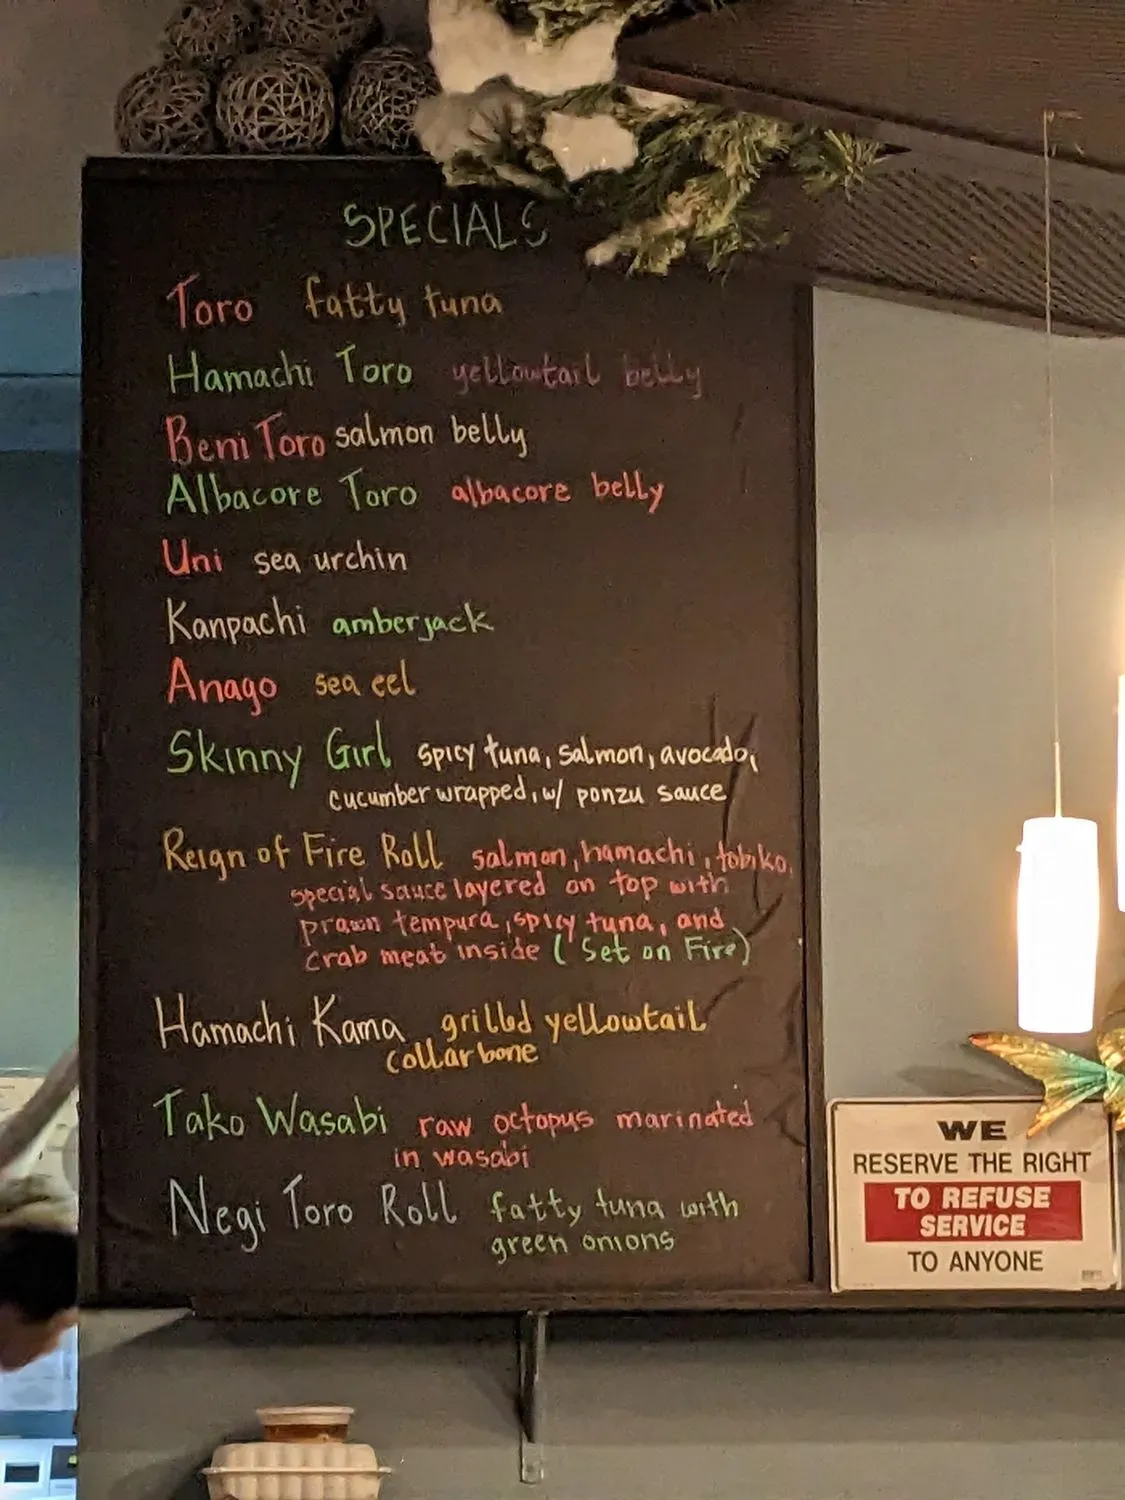 SPECIALS
Toro fatty tuna
Hamachi Toro yellowtail belly
Beni Toro salmon belly
Albacore Toro albacore belly
Uni sea urchin
Kanpachi amberjack
Anago sea eel
Skinny Girl spicy tuna, salmon, avocado,
cucumber wrapped, w/ ponzu sauce
Reign of Fire Roll salmon, hamachi, tobiko,
special sauce layered on top with
prawn tempura, spicy tuna, and
crab meat inside (Set on Fire)
Hamachi Kama grilled yellowtail
collarbone
Tako Wasabi raw octopus marinated
in wasabi
Negi Toro Roll fatty tuna with
green onions
WE
RESERVE THE RIGHT
TO REFUSE
SERVICE
TO ANYONE